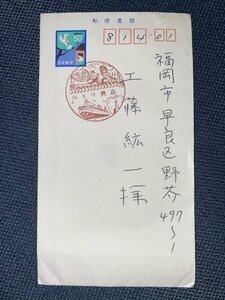 郵便書簡
50
日本郵便
814-01
福岡市早良区野芥
497
5〜1
工藤紘一様
青森